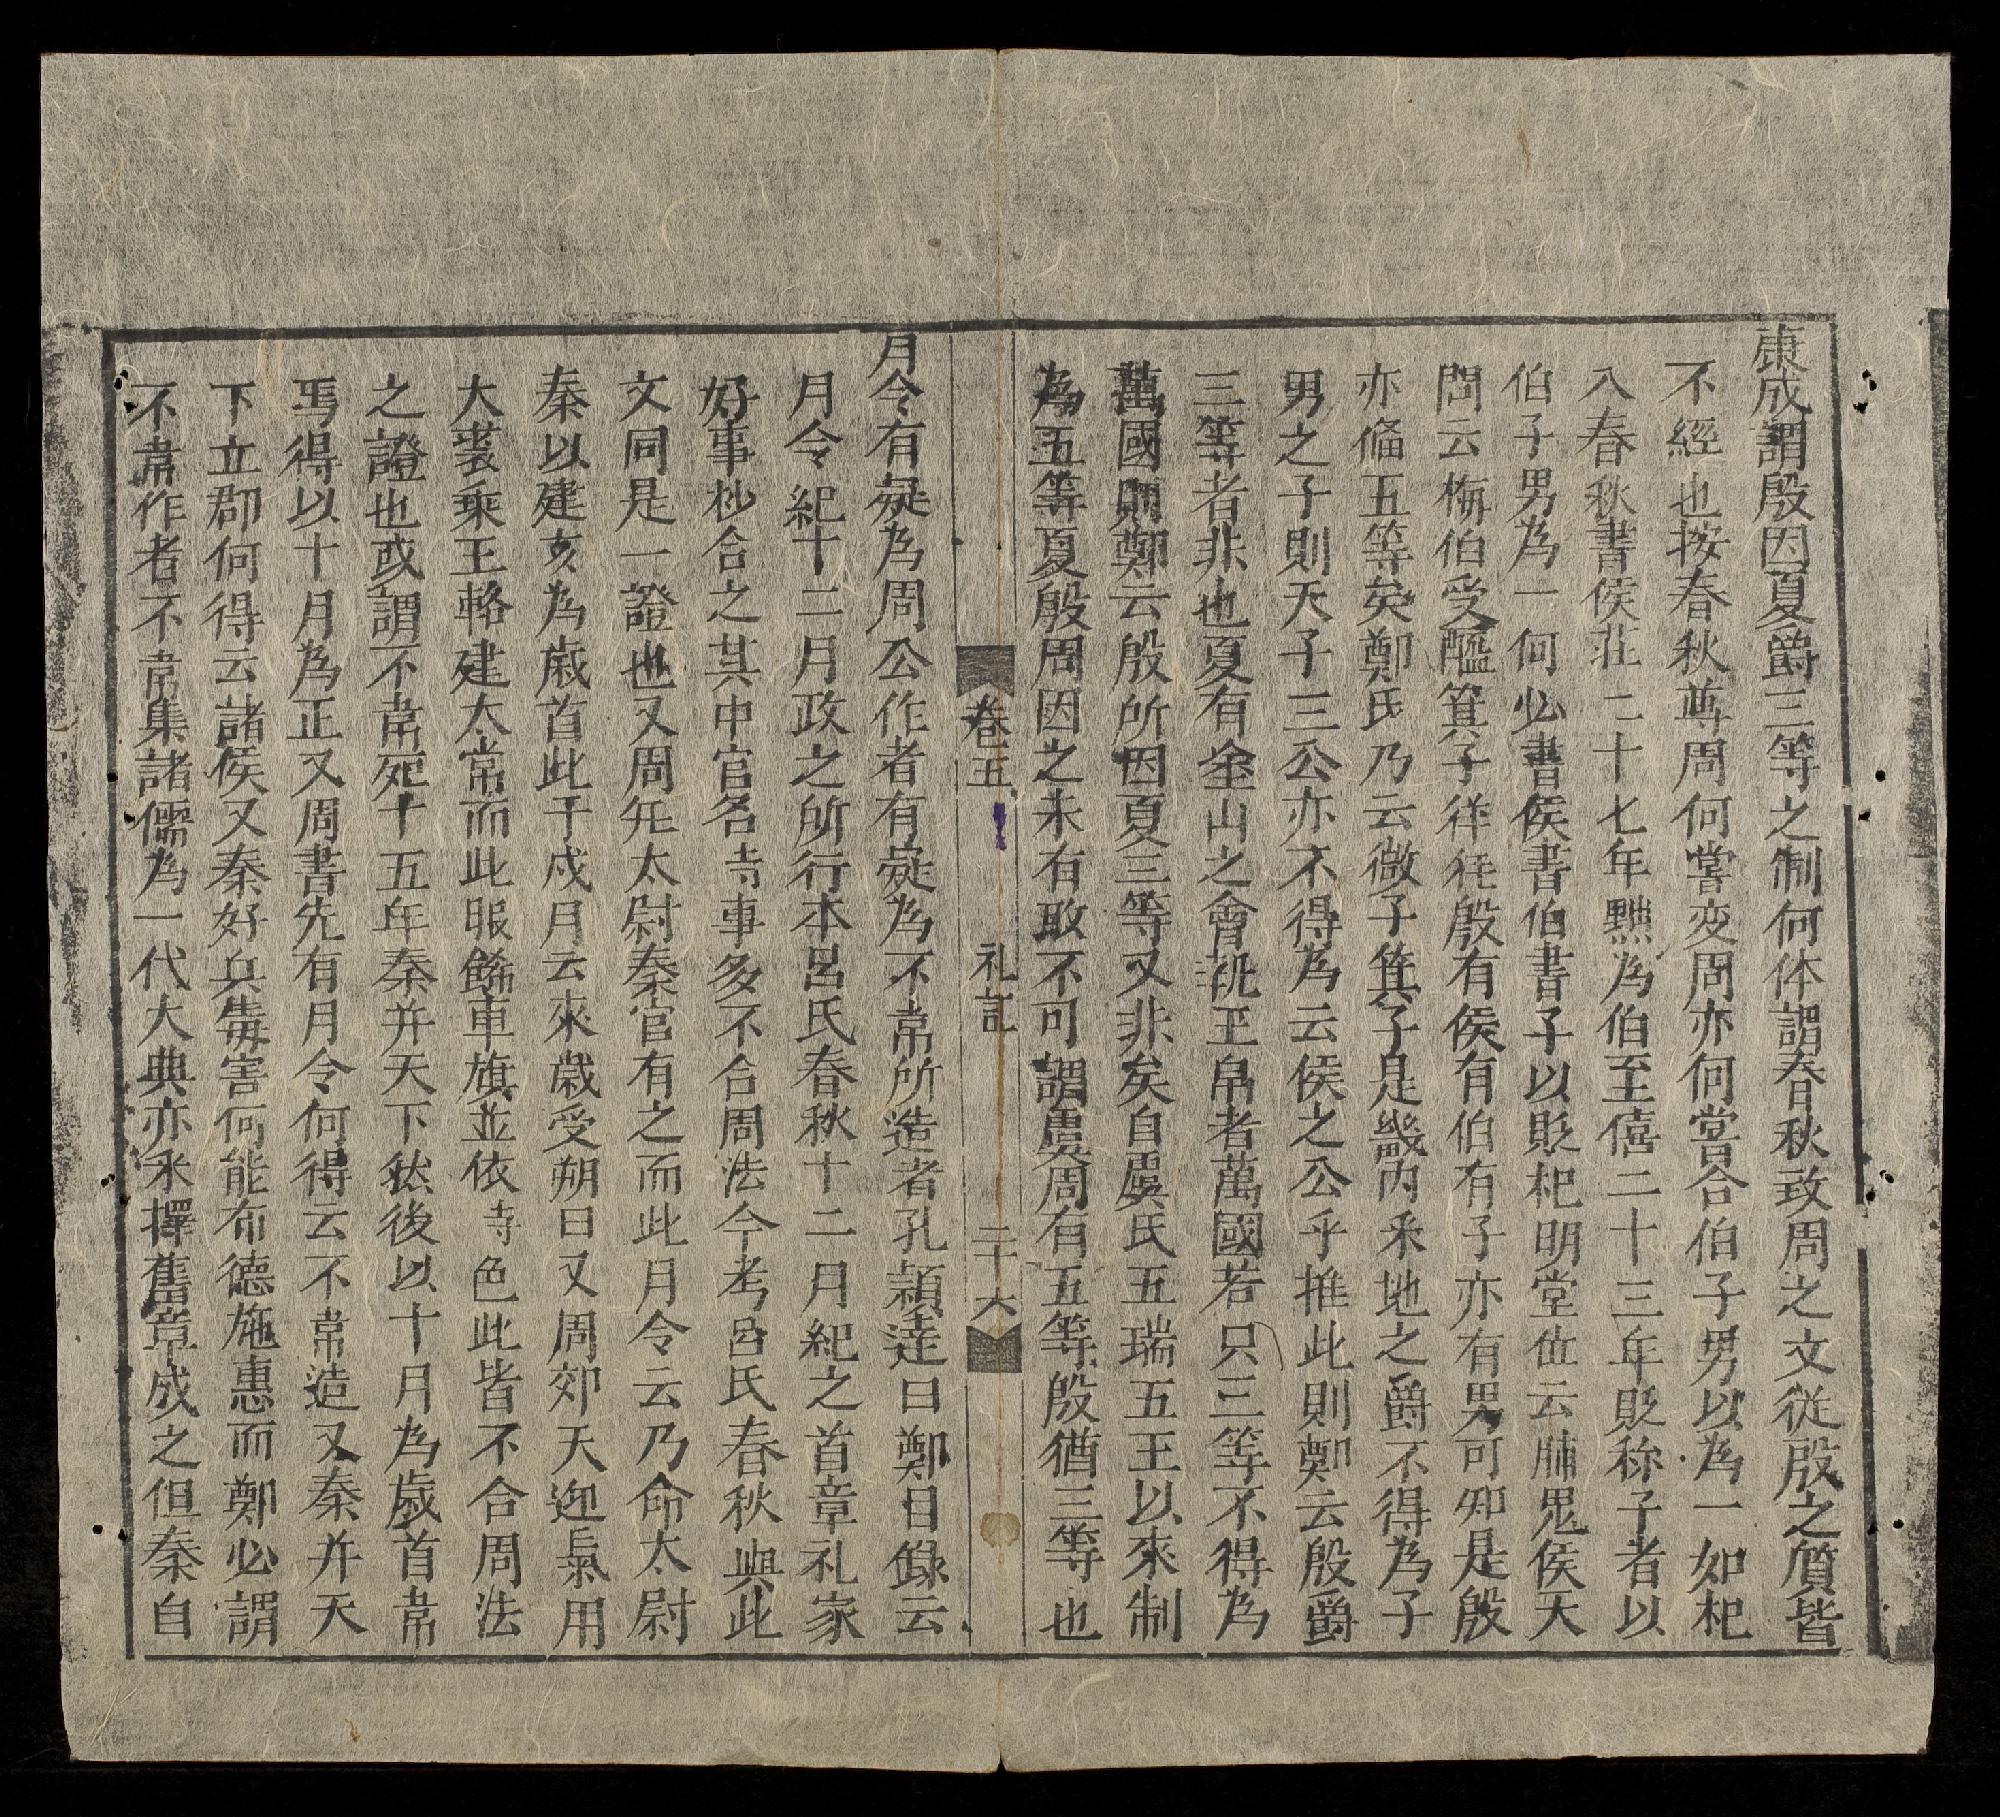 康成謂殷因夏爵三等之制何体謂春秋致周之文從殷之質皆
不經也按春秋尊周何嘗变周亦何嘗合伯子男以為一如杞
入春秋書侯莊二十七年黜為伯至僖二十三年貶称子者以
伯子男為一何必書侯書伯書子以貶杞明堂位云脯鬼侯天
問云梅伯受醢箕子徉狂殷有侯有伯有子亦有男可知是殷
亦俻五等矣鄭氏乃云微子箕子是畿內采地之爵不得為子
男之子則天子三公亦不得為云侯之公乎推此則鄭云殷爵
三等者非也夏有塗山之會執玉帛者萬國若只三等不得為
萬國則鄭云殷所因夏三等又非矣自虞氏五瑞五玉以來制
為五等夏殷周因之未有敢不可謂虞周有五等殷猶三等也
卷五 礼記 二十六
月令有疑為周公作者有疑為不韋所造者孔頴逹曰鄭目錄云
月令紀十二月政之所行本呂氏春秋十二月紀之首章礼家
好事抄合之其中官名寺事多不合周法今考呂氏春秋與此
文同是一證也又周旡太尉秦官有之而此月令云乃命太尉
秦以建亥為歳首此于戍月云來歳受朔日又周郊天迎氣用
大裘乘玉輅建太常而此服餙車旗並依寺色此皆不合周法
之證也或謂不韋死十五年秦并天下然後以十月為歲首韋
焉得以十月為正又周書先有月令何得云不韋造又秦并天
下立郡何得云諸侯又秦好兵毒害何能布德施惠而鄭必謂
不韋作者不韋集諸儒為一代大典亦采擇舊章成之但秦自